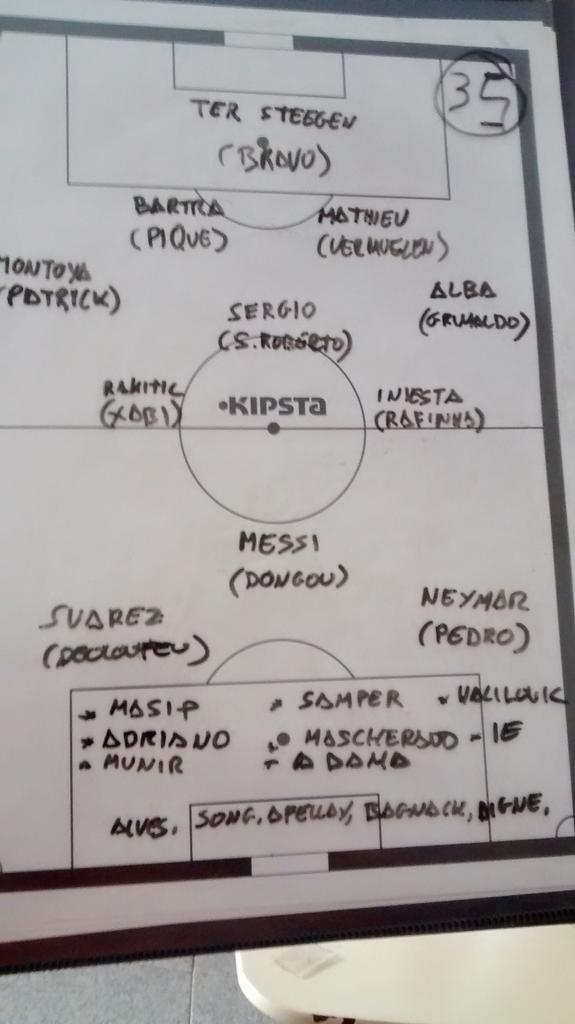 35
TER STEEGEN
(BRAVO)
BARTRA MATHIEU
(PIQUE) (VERMUELEN)
MONTOYA ALBA
(PATRICK) (GRIMALDO)
SERGIO
(S. ROBERTO)
RAKITIC INIESTA
(XABI) •KIPSTA (RAFINHA)
MESSI
(DONGOU)
SUAREZ NEYMAR
(DEOLOUFEU) (PEDRO)
MASIP SAMPER HALILOVIC
ADRIANO MASCHERANO - IE
MUNIR ADAMA
ALVES. SONG. AFELLAY, BAGNACK, DIGNE.